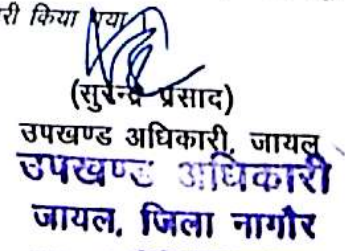 री किया गया
(सुरेन्द्र प्रसाद)
उपखण्ड अधिकारी, जायल
उपखण्ड अधिकारी
जायल, जिला नागौर